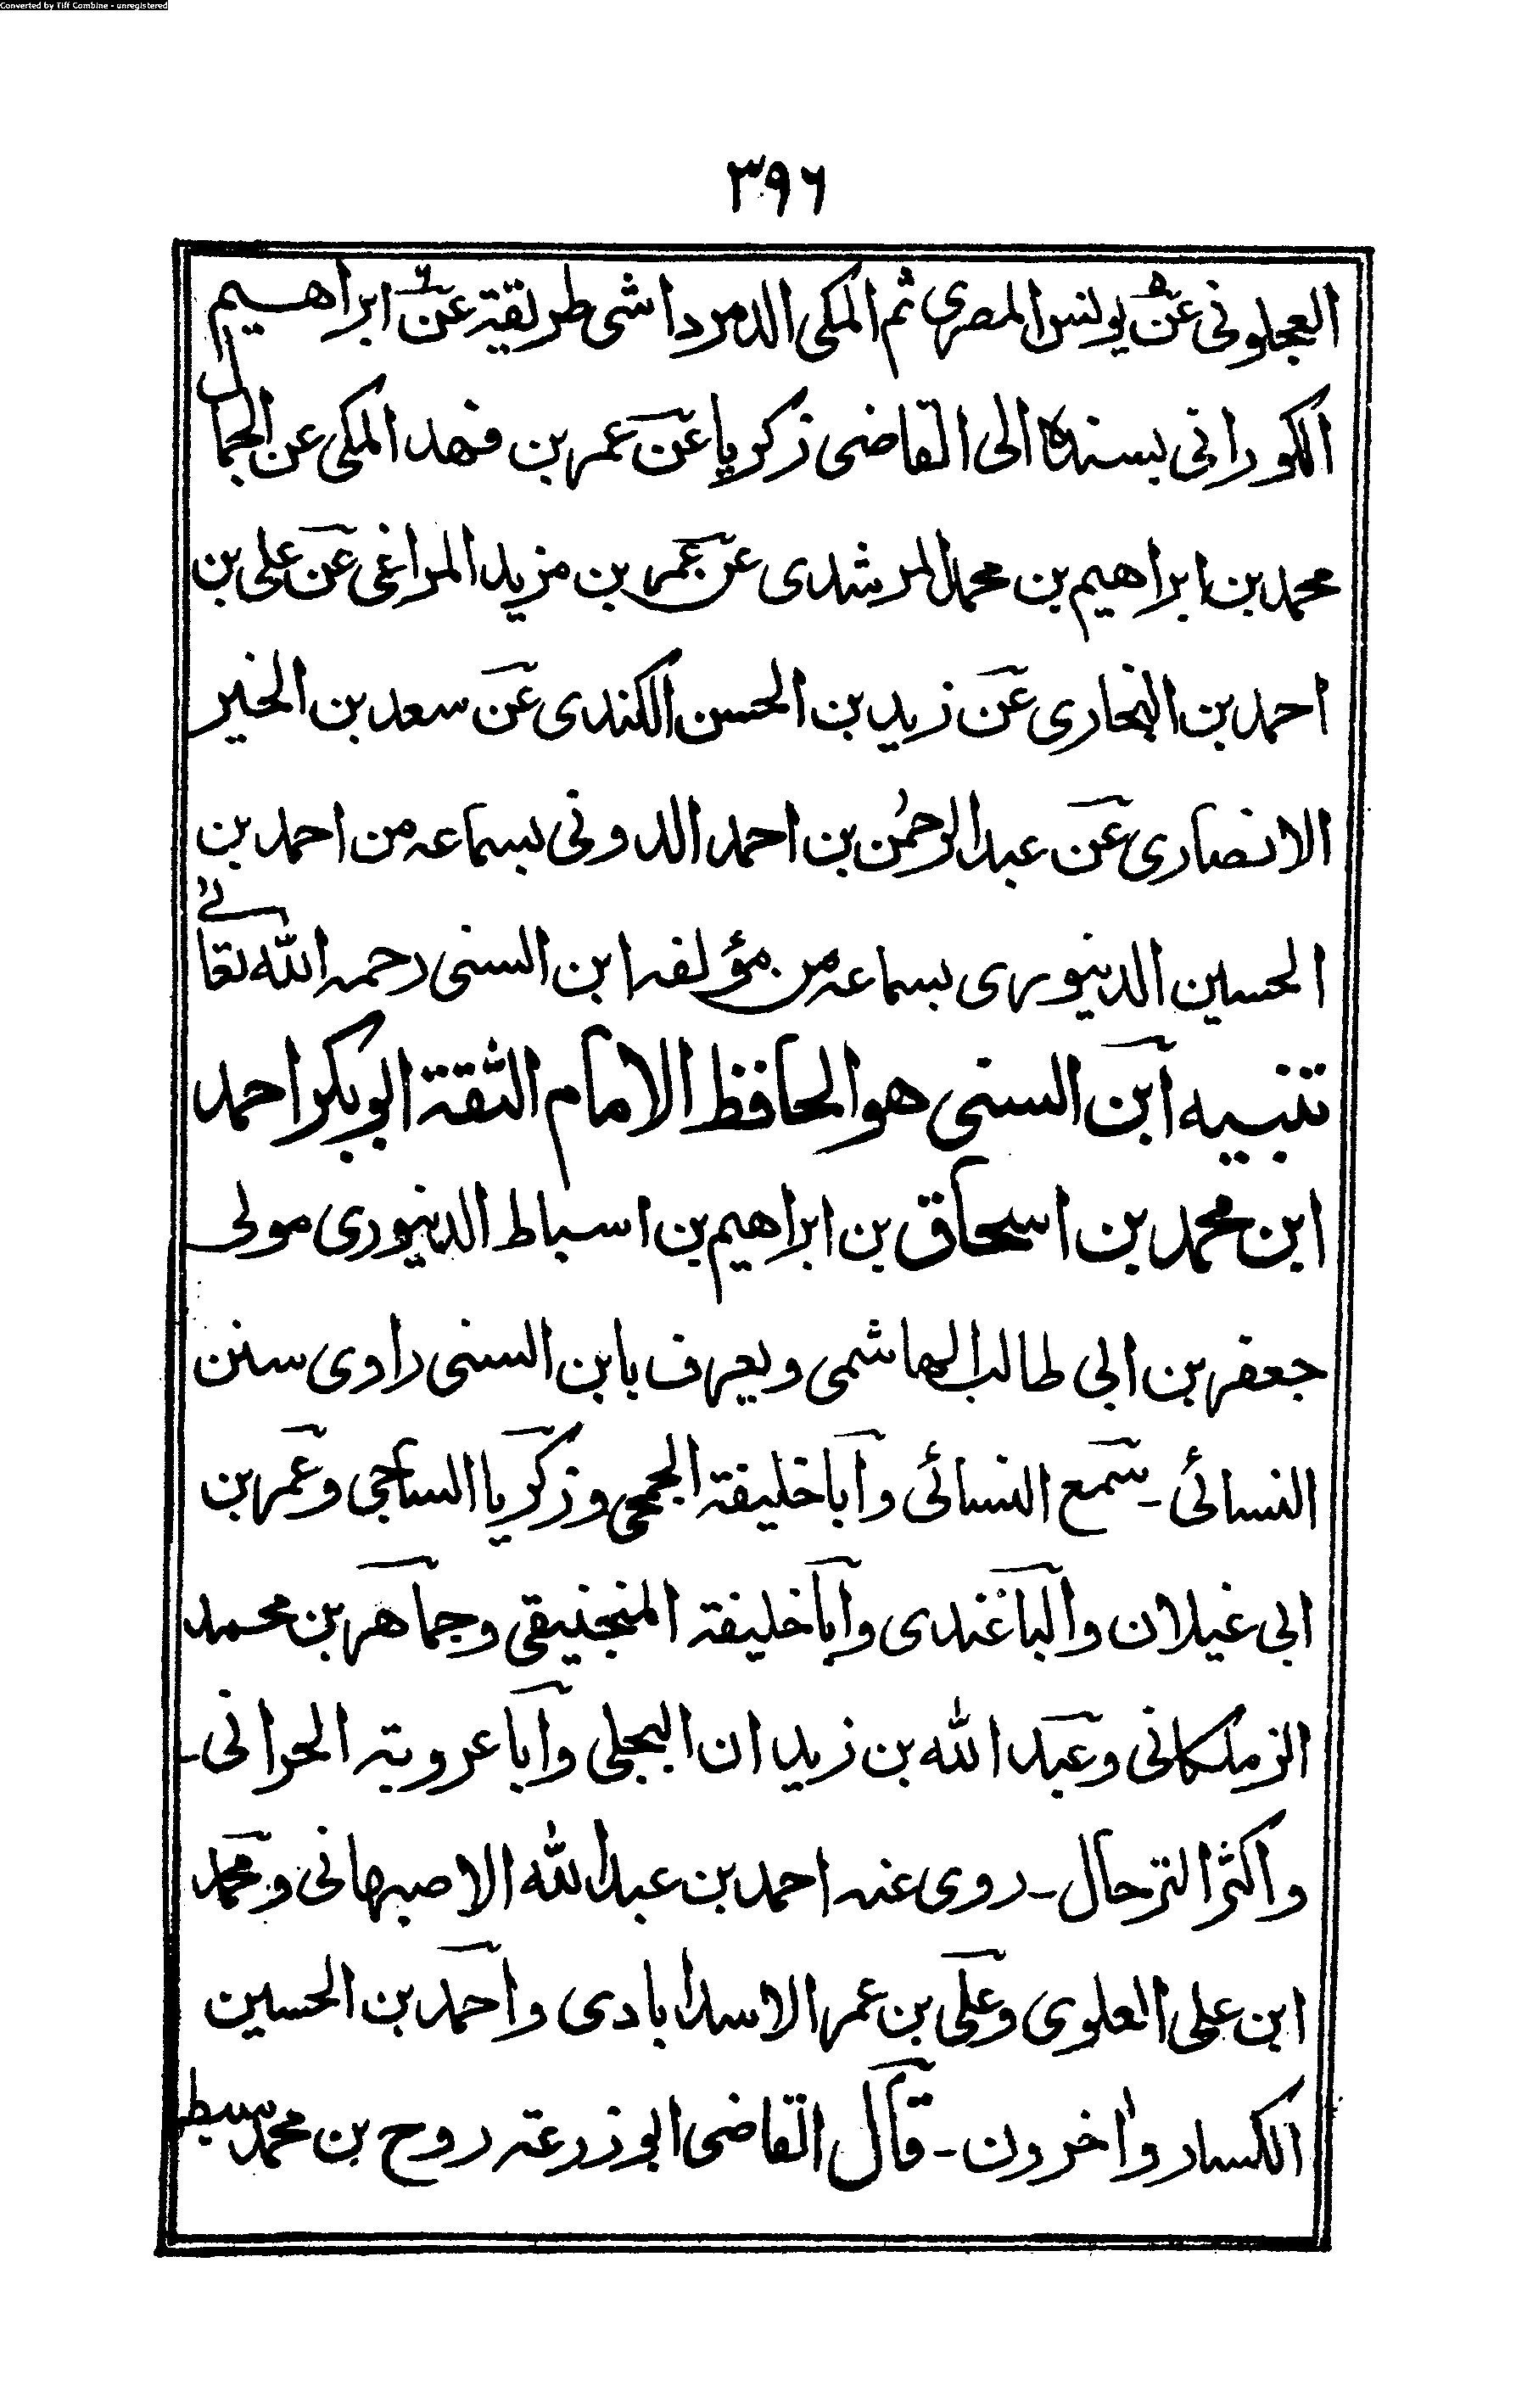 Converted by Tiff Combine - unregistered
٣٩٦
العجلونی عن یونس المصری ثم المکی الدمرداشی طریقۃ عن ابراهیم
الکورانی بسندہ الی القاضی زکریا عن عمر بن فهد المکی عن الجمال
محمد بن ابراهیم بن محمد المرشدی عن عمر بن مزید المراغی عن علی بن
احمد بن البخاری عن زید بن الحسن الکندی عن سعد بن الخیر
الانصاری عن عبد الرحمٰن بن احمد الدونی بسماعہ من احمد بن
الحسین الدینوری بسماعہ من مؤلفہ ابن السنی رحمہ اللّٰه تعالیٰ
تنبیه ابن السنی هو الحافظ الامام الثقة ابوبکر احمد
ابن محمد بن اسحاق بن ابراهیم بن اسباط الدینوری مولی
جعفر بن ابی طالب الهاشمی ویعرف بابن السنی راوی سنن
النسائی ـ سمع النسائی وابا خلیفۃ الجمحی وزکریا الساجی وعمر بن
ابی غیلان والباغندی وابا خلیفۃ المنجنیقی وجماهر بن محمد
الزملکانی وعبد اللّٰه بن زیدان البجلی وابا عروبۃ الحرانی ـ
واکثر الترحال ـ روی عنہ احمد بن عبد اللّٰه الاصبهانی ومحمد
ابن علی العلوی وعلی بن عمر الاسدابادی واحمد بن الحسین
الکسار واٰخرون ـ قال القاضی ابو زرعۃ روح بن محمد سبط